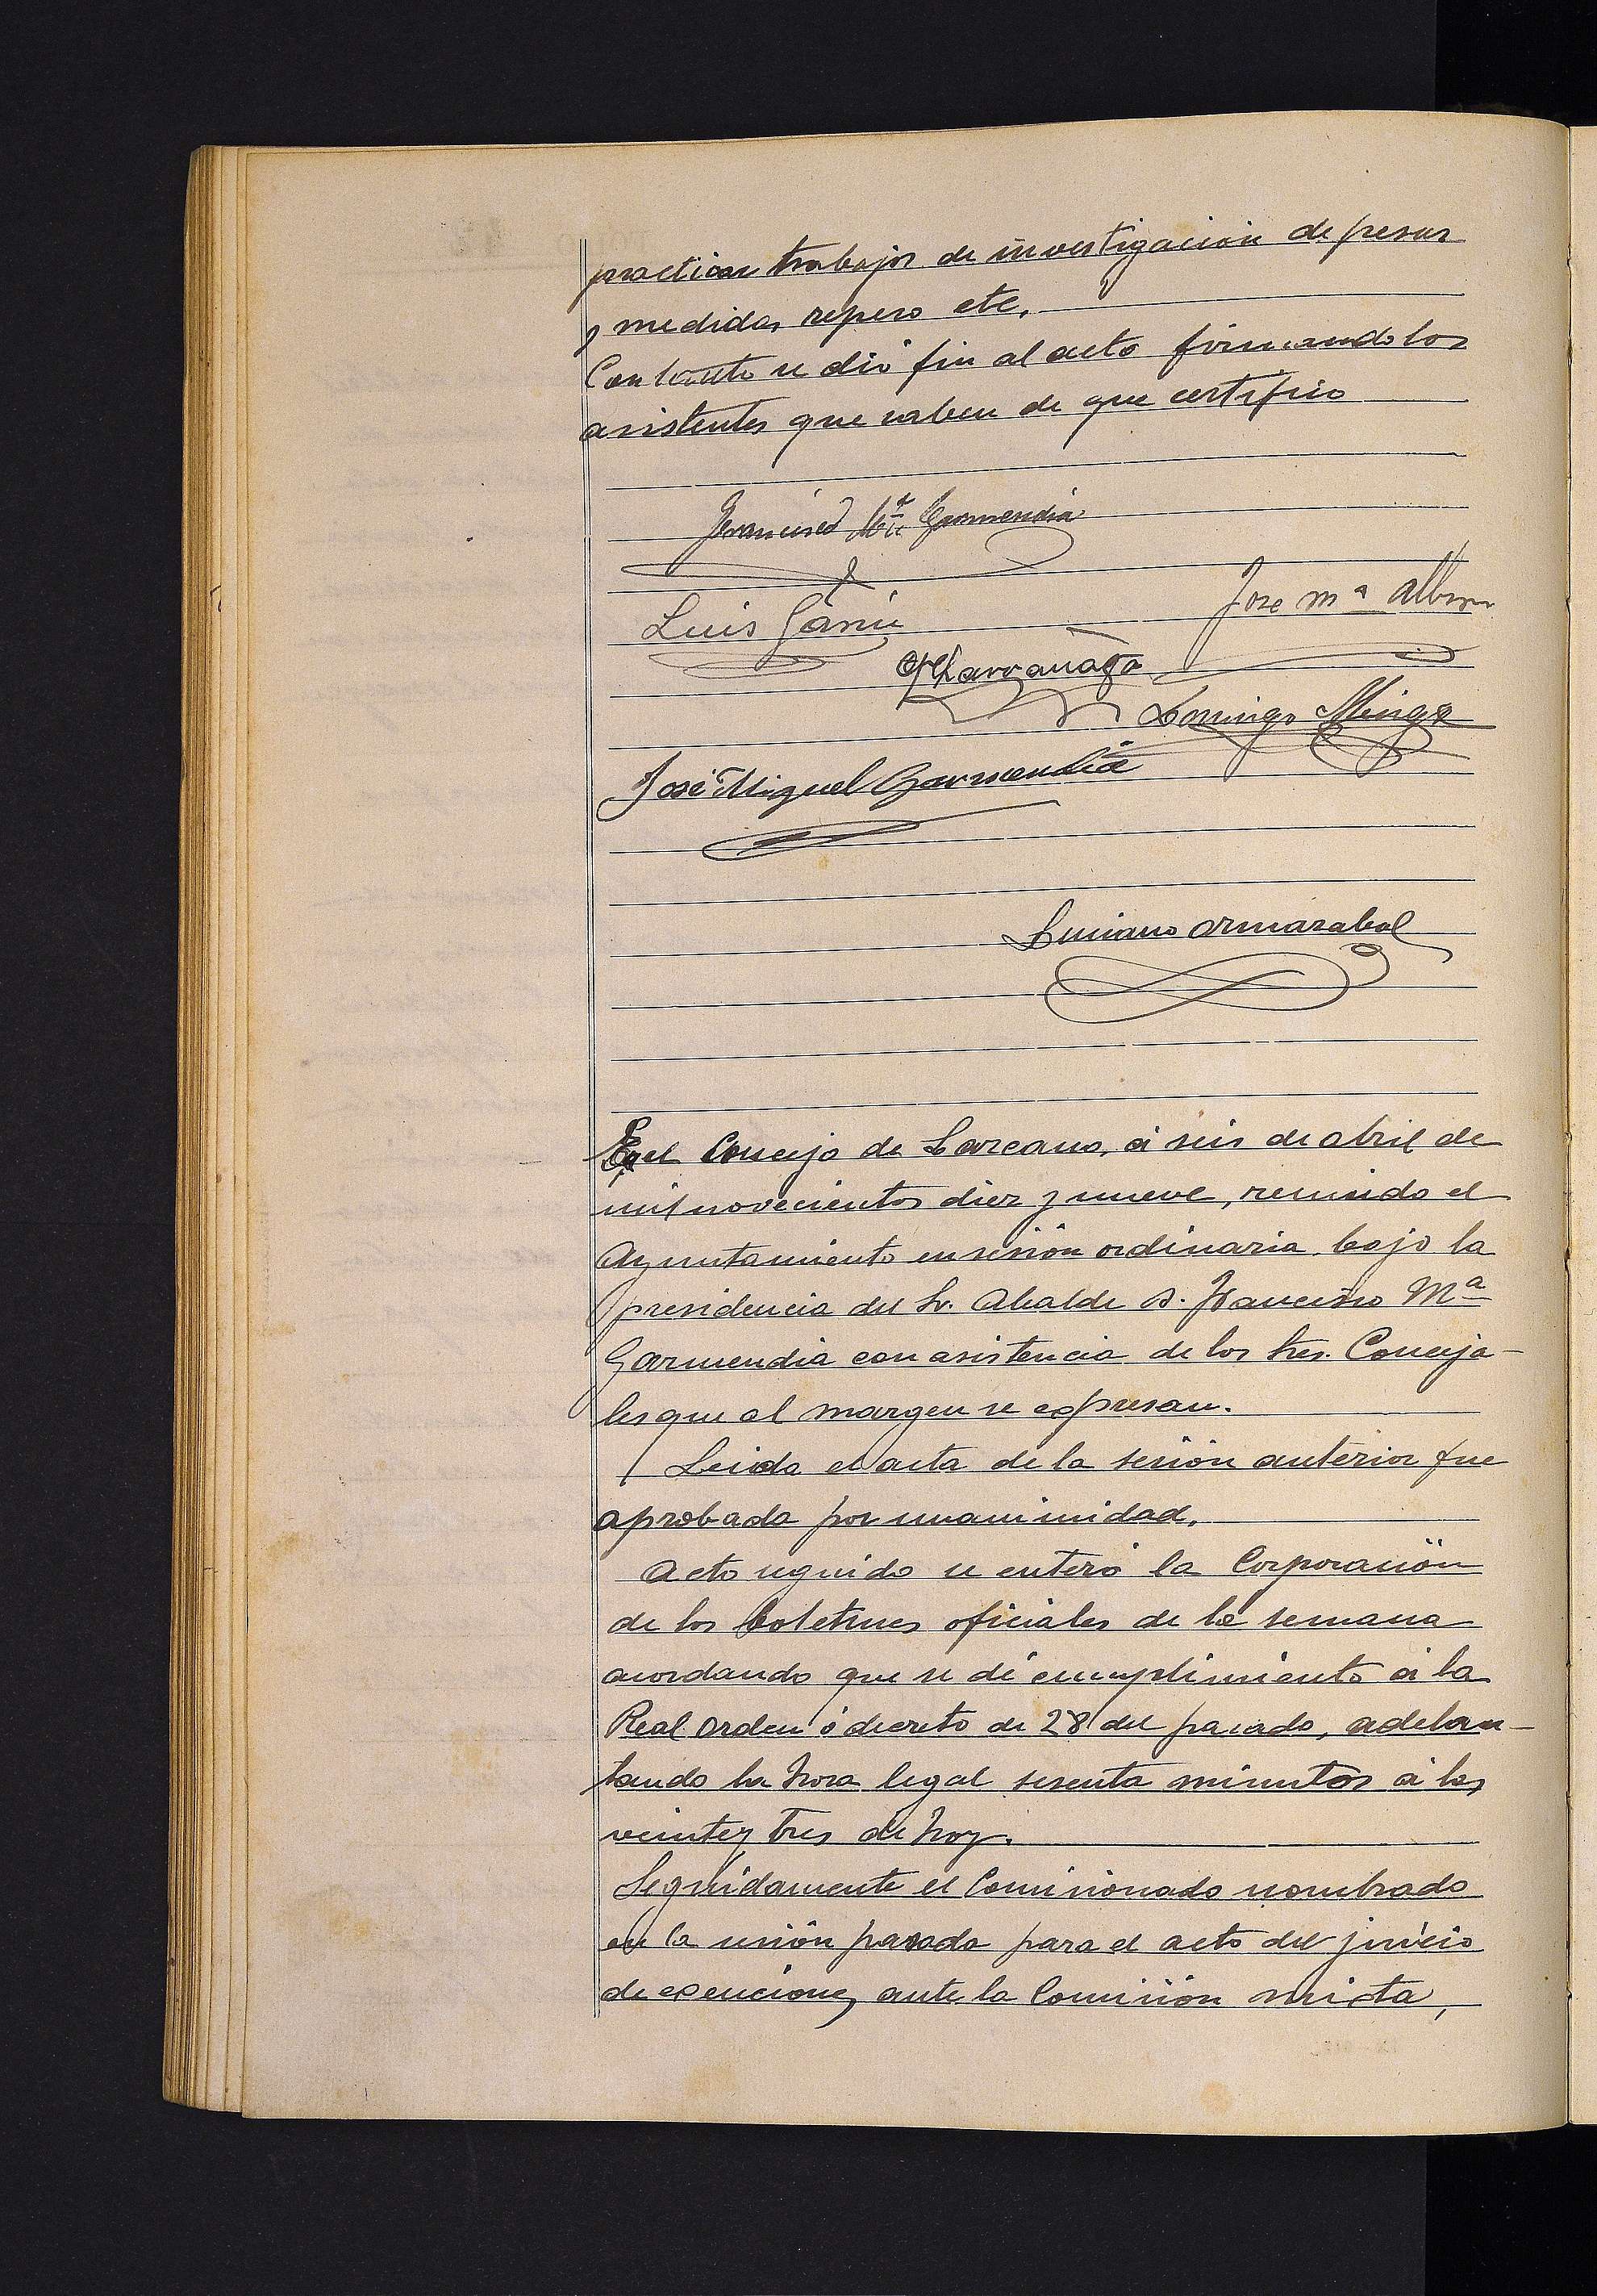 practicar trabajos de investigación de pesas
y medidas, repeso etc.
Con tanto se dió fin al acto firmando los
asistentes que saben de que certifico
Francisco Mª Garmendia
Luis Garín
Jose Mª
Larrañaga
Domingo
José Miguel Garmendia
Luciano Ormazabal
En el Concejo de Lazcano, á seis de abril de
mil novecientos diez y nueve, reunido el
Ayuntamiento en sesión ordinaria bajo la
presidencia del Sr. Alcalde D. Francisco Mª
Garmendia con asistencia de los Sres. Conceja-
les que al margen se expresan.
Leida el acta de la sesión anterior fue
aprobada por unanimidad.
Acto seguido se enteró la Corporación
de los boletines oficiales de la semana
acordando que se dé cumplimiento á la
Real orden ó decreto de 28 del pasado, adelan-
tando la hora legal sesenta minutos á las
veinte y tres de hoy.
Seguidamente el Comisionado nombrado
en la sesión pasada para el acto del juicio
de exenciones ante la Comisión mixta,